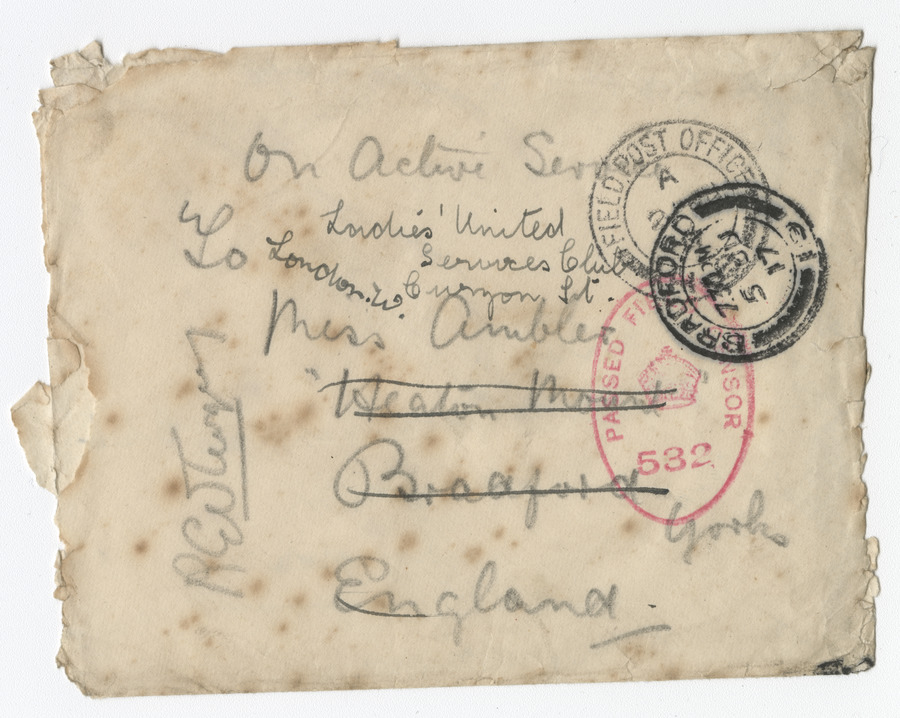 On Active Service
To
Ladies' United
Services Club
Curzon St.
London. W.
Miss Ambler
Heaton Mount
Bradford
Yorks
England.
FIELD POST OFFICE
A
BRADFORD
17
5
PASSED FIELD CENSOR
532